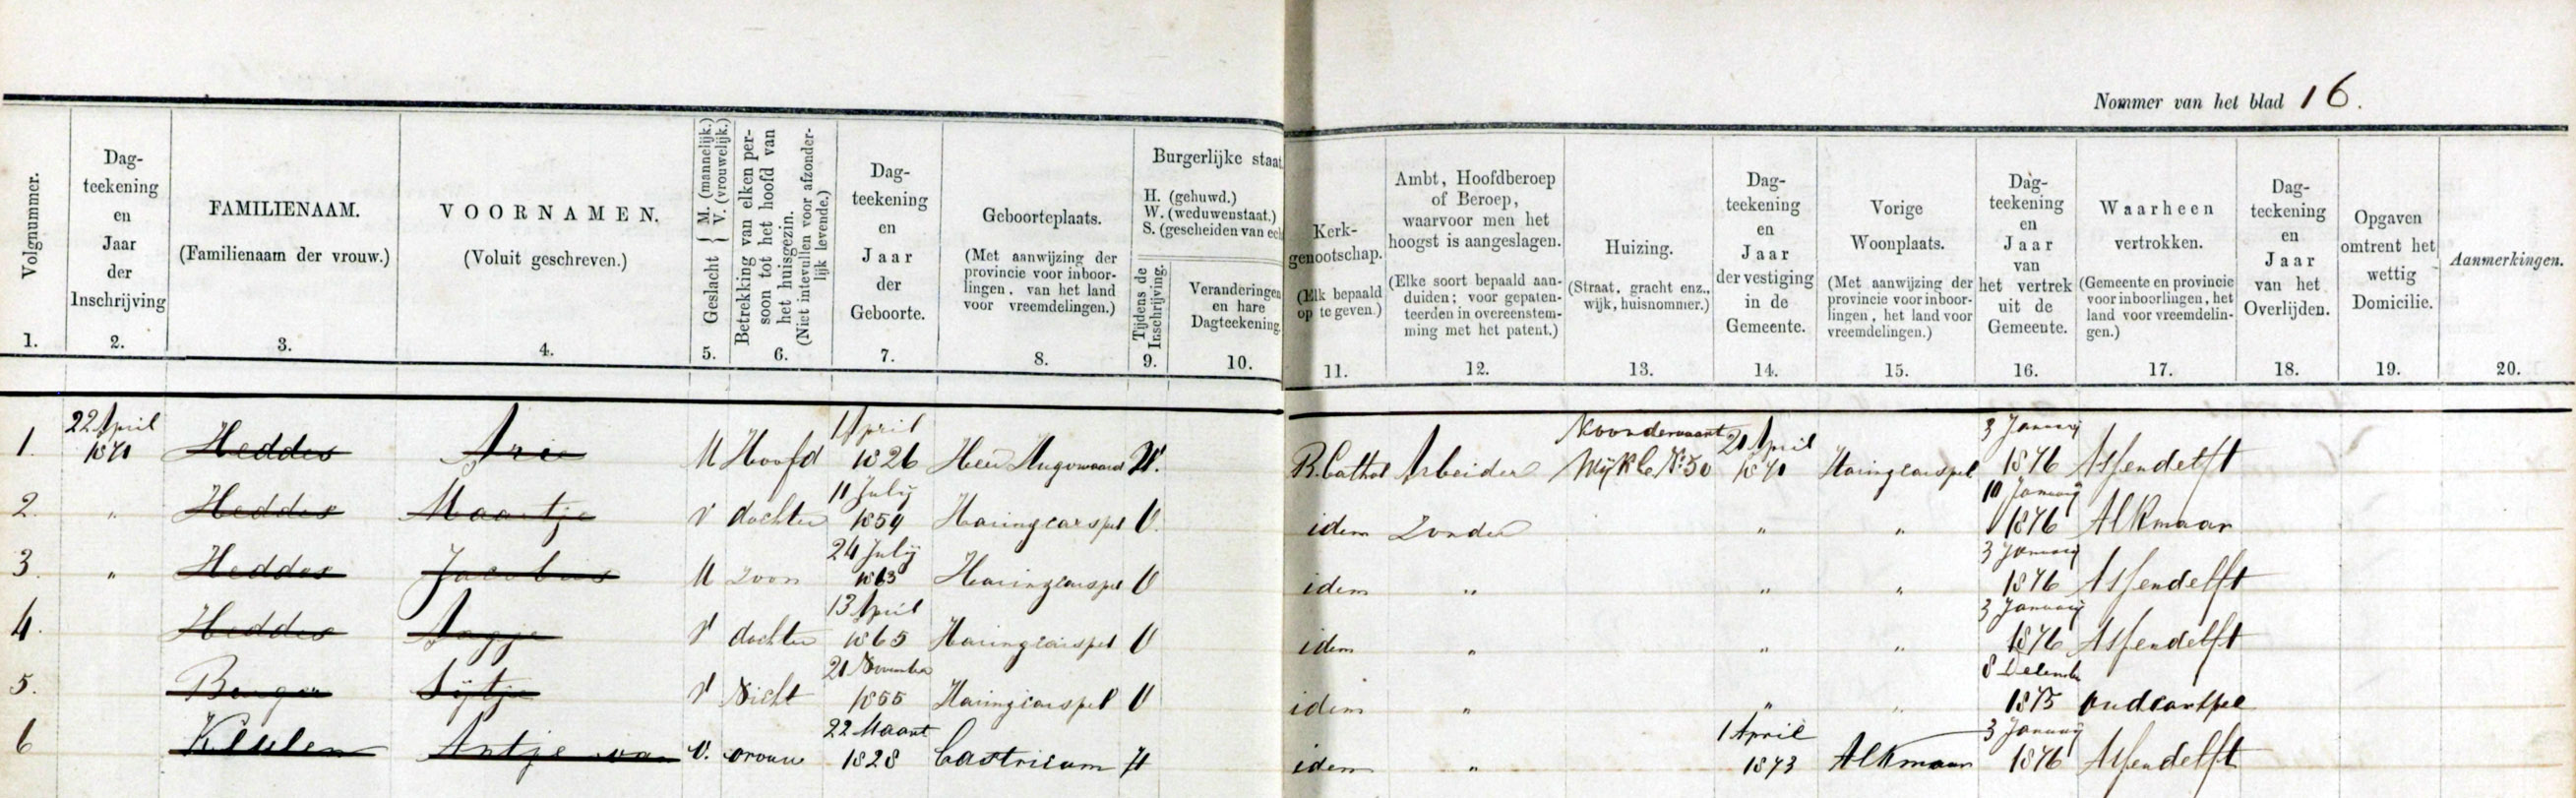 Nommer van het blad 16.
Volgnummer.
1.
Dag-
teekening
en
Jaar
der
Inschrijving
2.
FAMILIENAAM.
(Familienaam der vrouw.)
3.
VOORNAMEN.
(Voluit geschreven.)
4.
Geslacht { M. (mannelijk.)
V. (vrouwelijk.)
5.
Betrekking van elken per-
soon tot het hoofd van
het huisgezin.
(Niet intevullen voor afzonder-
lijk levende.)
6.
Dag-
teekening
en
Jaar
der
Geboorte.
7.
Geboorteplaats.
(Met aanwijzing der
provincie voor inboor-
lingen, van het land
voor vreemdelingen.)
8.
Burgerlijke staat
H. (gehuwd.)
W. (weduwenstaat.)
S. (gescheiden van ech
Tijdens de
Inschrijving.
9.
Veranderingen
en hare
Dagteekening.
10.
Kerk-
genootschap.
(Elk bepaald
op te geven.)
11.
Ambt, Hoofdberoep
of Beroep,
waarvoor men het
hoogst is aangeslagen.
(Elke soort bepaald aan-
duiden; voor gepaten-
teerden in overeenstem-
ming met het patent.)
12.
Huizing.
(Straat, gracht enz.,
wijk, huisnommer.)
13.
Dag-
teekening
en
Jaar
der vestiging
in de
Gemeente.
14.
Vorige
Woonplaats.
(Met aanwijzing der
provincie voor inboor-
lingen, het land voor
vreemdelingen.)
15.
Dag-
teekening
en
Jaar
van
het vertrek
uit de
Gemeente.
16.
Waarheen
vertrokken.
(Gemeente en provincie
voor inboorlingen, het
land voor vreemdelin-
gen.)
17.
Dag-
teekening
en
Jaar
van het
Overlijden.
18.
Opgaven
omtrent het
wettig
Domicilie.
19.
Aanmerkingen.
20.
22 April 1 April Noordervaart 21 April 3 January
1. 1871 Heddes Arie M Hoofd 1826 Heer Hugowaard W. R. Cathol Arbeider Wijk C No 50 1871 Haringcarspel 1876 Assendelft
11 July 10 January
2. " Heddes Maartje V dochter 1859 Haringcarspel O. idem Zonder " " 1876 Alkmaar
24 July 3 January
3. " Heddes Jacobus M zoon 1863 Haringcarspel O idem " " " 1876 Assendelft
13 April 3 January
4. Heddes Aagje V dochter 1865 Haringcarspel O idem " " " 1876 Assendelft
21 November 8 December
5. Sijtje V Nicht 1855 Haringcarspel O idem " " " 1875 Oudcarspel
22 Maart 1 April 3 January
6 Antje van V. vrouw 1828 Castricum H idem " 1873 Alkmaar 1876 Assendelft